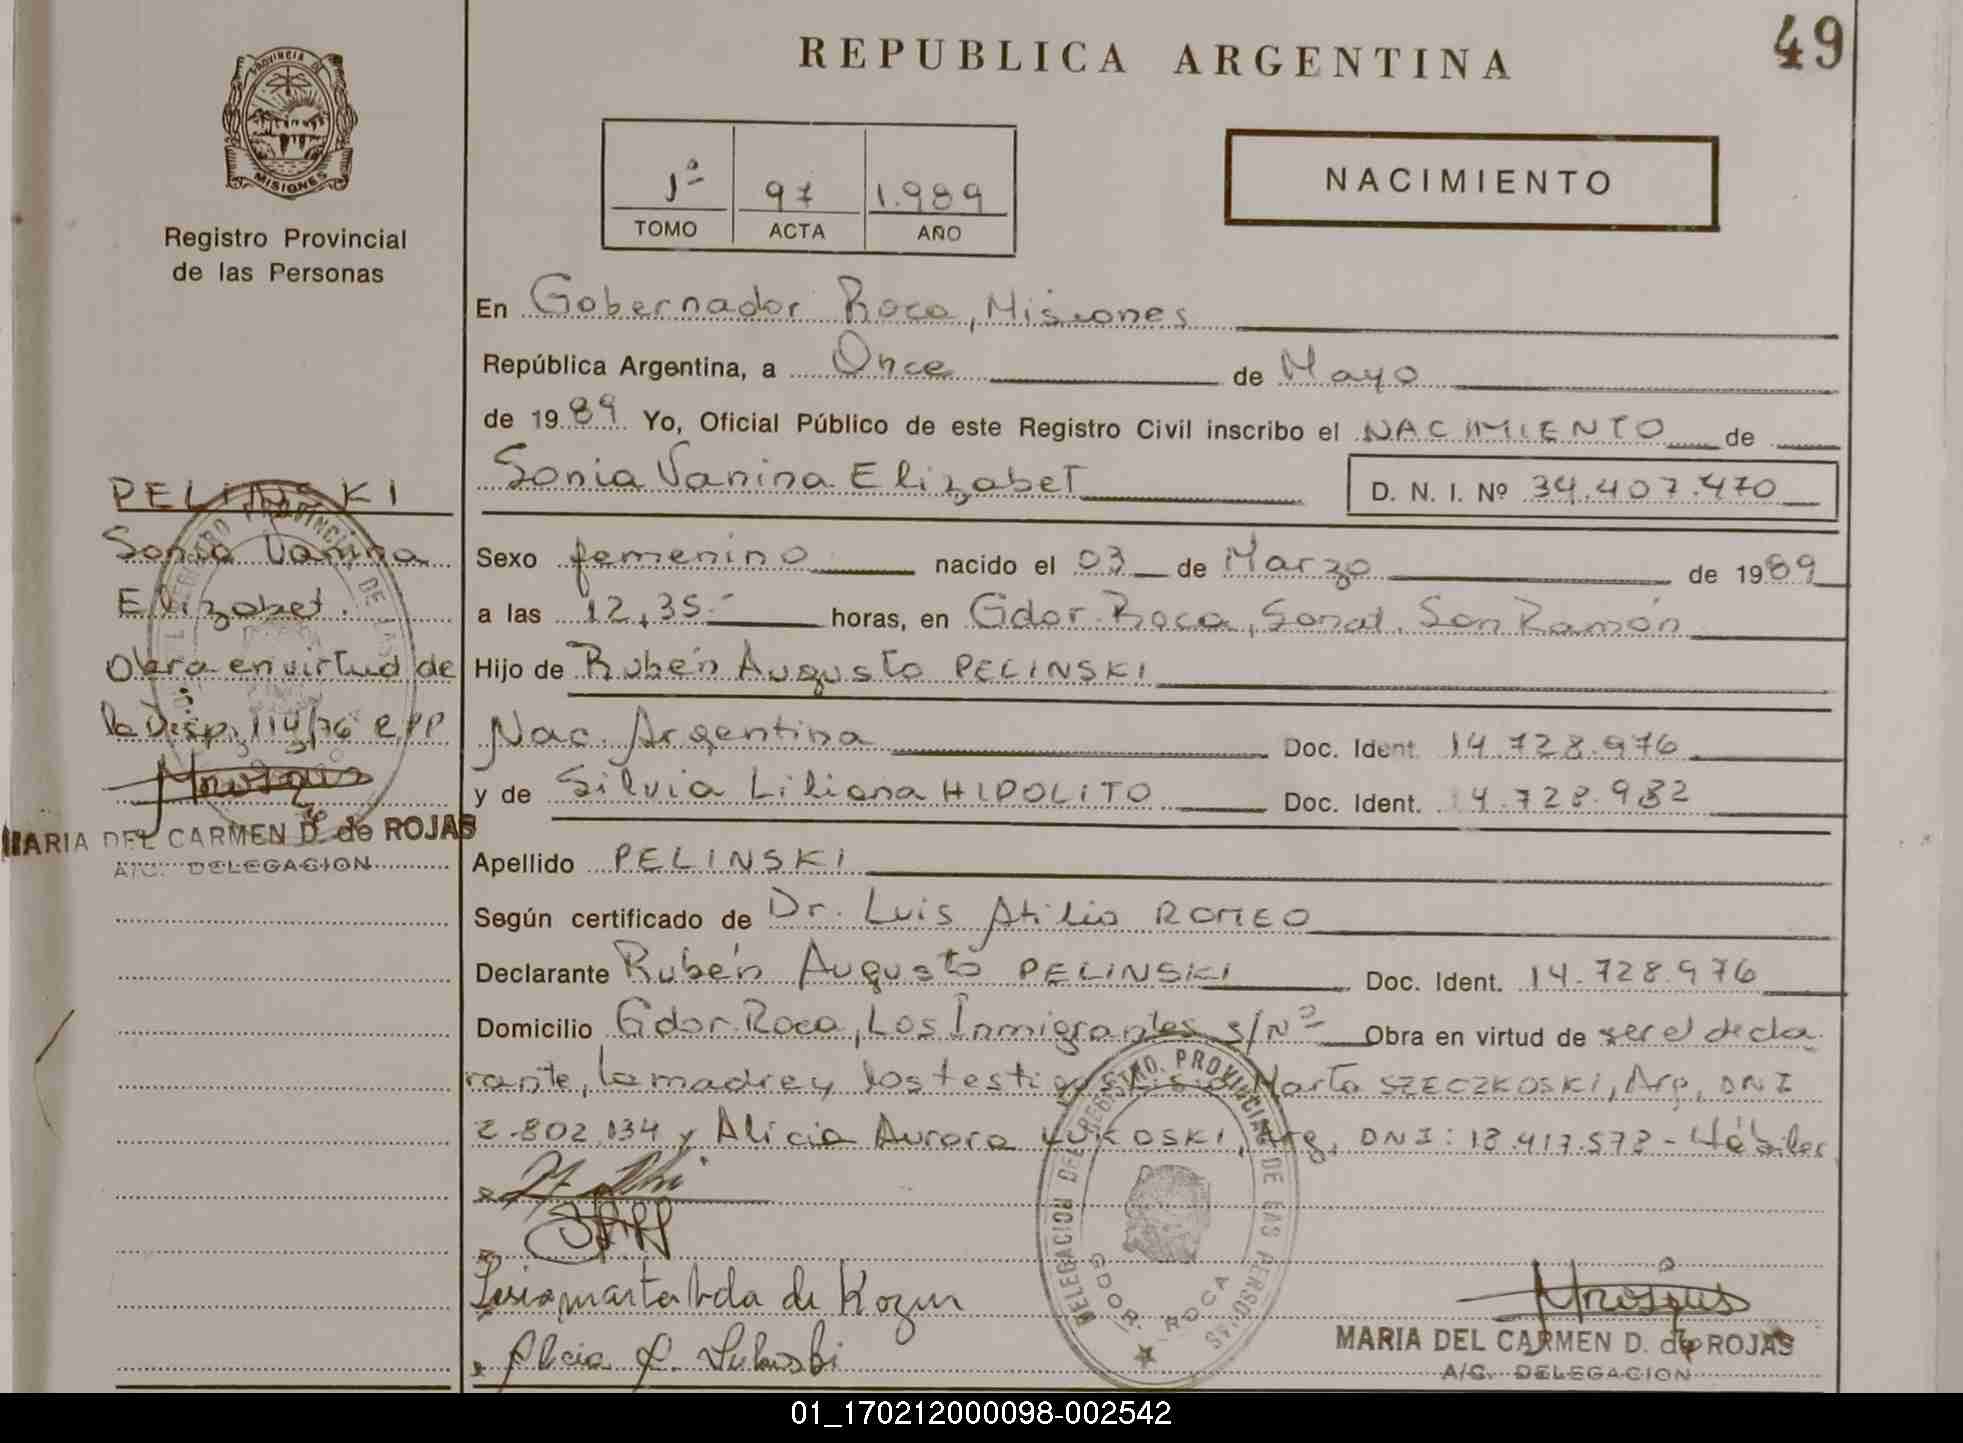 REPUBLICA ARGENTINA
49
PROVINCIA DE
MISIONES
Registro Provincial
de las Personas
1º 97 1.989
TOMO ACTA AÑO
NACIMIENTO
En Gobernador Roca, Misiones
República Argentina, a Once de Mayo
de 1989 Yo, Oficial Público de este Registro Civil inscribo el NACIMIENTO de
Sonia Vanina Elizabet D. N. I. Nº 34.407.470
Sexo femenino nacido el 03 de Marzo de 1989
a las 12,35.- horas, en Gdor. Roca, Sanat. San Ramón
Hijo de Rubén Augusto PELINSKI
Nac. Argentina Doc. Ident. 14.728.976
y de Silvia Liliana HIPOLITO Doc. Ident. 14.728.982
Apellido PELINSKI
Según certificado de Dr. Luis Atilio ROMEO
Declarante Rubén Augusto PELINSKI Doc. Ident. 14.728.976
Domicilio Gdor. Roca, Los Inmigrantes s/Nº Obra en virtud de ser el decla
rante, la madre y los testigos Marta SZECZKOSKI, Arg, DNI
2.802.134 y Alicia Aurora LUKOSKI, Arg, DNI: 18.417.578 - Hábiles
Marta de Kozur
Alicia
DELEGACION DEL REGISTRO PROVINCIAL DE LAS PERSONAS
GDOR. ROCA
MARIA DEL CARMEN D. de ROJAS
A/C. DELEGACION
PELINSKI
Sonia Vanina
Elizabet.
Obra en virtud de
la Disp. 114/76 RPP
MARIA DEL CARMEN D. de ROJAS
A/C. DELEGACION
01_170212000098-002542